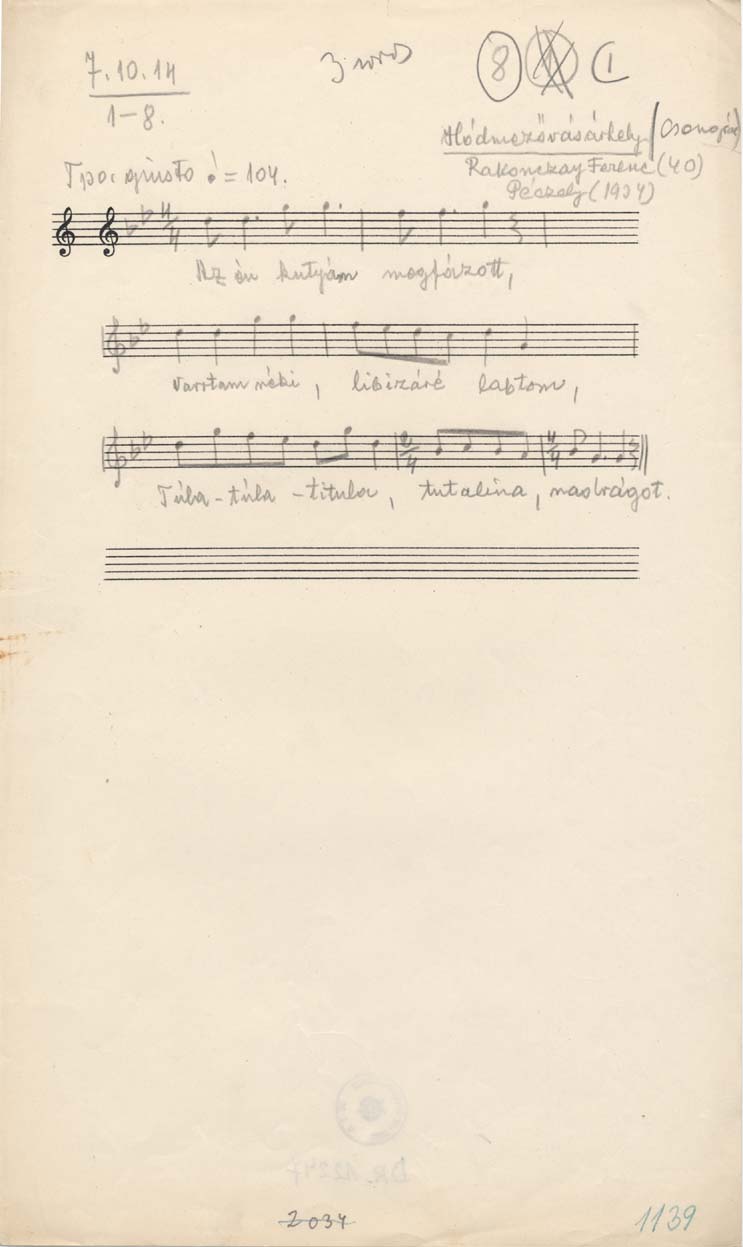 7.10.14
1-8.
3 soros
8
1
C I
Hódmezővásárhely (Csongrád)
Rakonczay Ferenc (40)
Péczely (1934)
Tpo: giusto = 104.
4/4
Az én kutyám megfázott,
Varrtam néki, libizáré laptom,
Túla-túla-titula, tutalina, nadrágot.
2/4
4/4
2034
1139